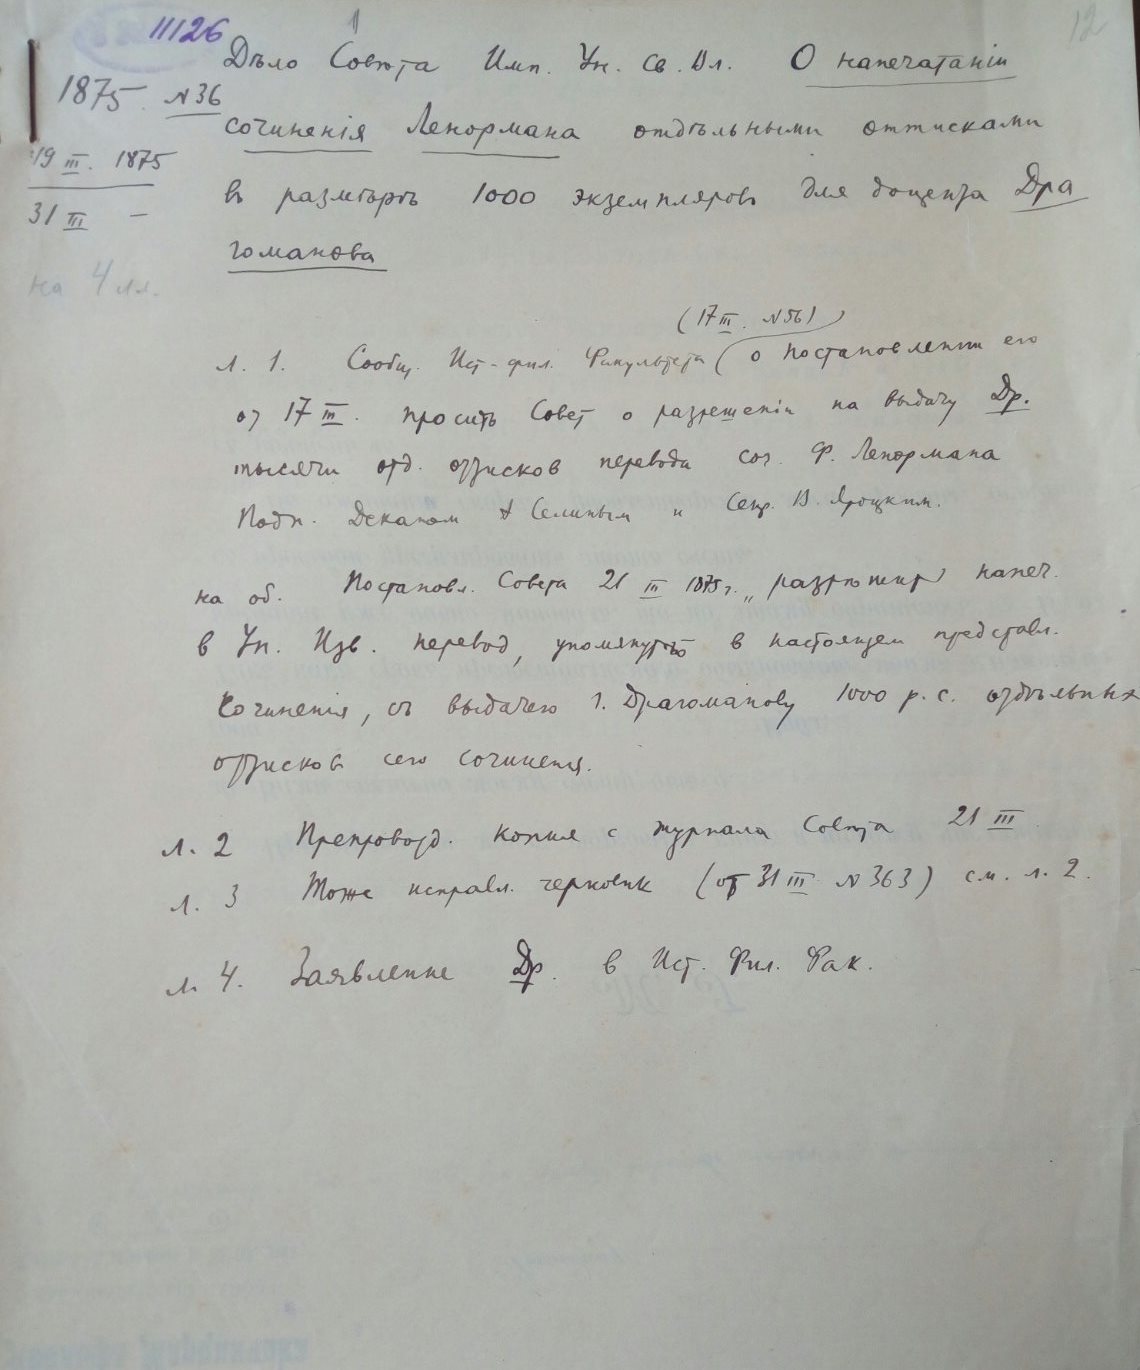 11126
12
1875 N 36
19 III. 1875
31 III —
на 4 лл.
Дѣло Совѣта Имп. Ун. Св. Вл. О напечатаніи
сочиненія Ленормана отдѣльными оттисками
въ размѣрѣ 1000 экземпляровъ для доцента Дра
гоманова
(17 III. N 56)
л. 1. Сообщ. Ист-фил. Факультета о постановлении его
от 17 III. просить Совет о разрешеніи на выдачу Др.
тысячи отд. оттисков перевода соч. Ф. Ленормана
Подп. Деканом А Селиным и Секр. В. Яроцким.
на об. Постановл. Совета 21 III 1875 г. „разрѣшить напеч.
в Ун. Изв. перевод, упомянутого в настоящем представл.
Сочиненія, съ выдачею г. Драгоманову 1000 р. с. отдѣльных
оттисковъ сего сочиненія.
л. 2 Препровожд. копия с журнала Совѣта 21 III
л. 3 Тоже исправл. черновик (от 31 III N 363) см. л. 2.
л. 4. Заявление Др. в Ист. Фил. Фак.